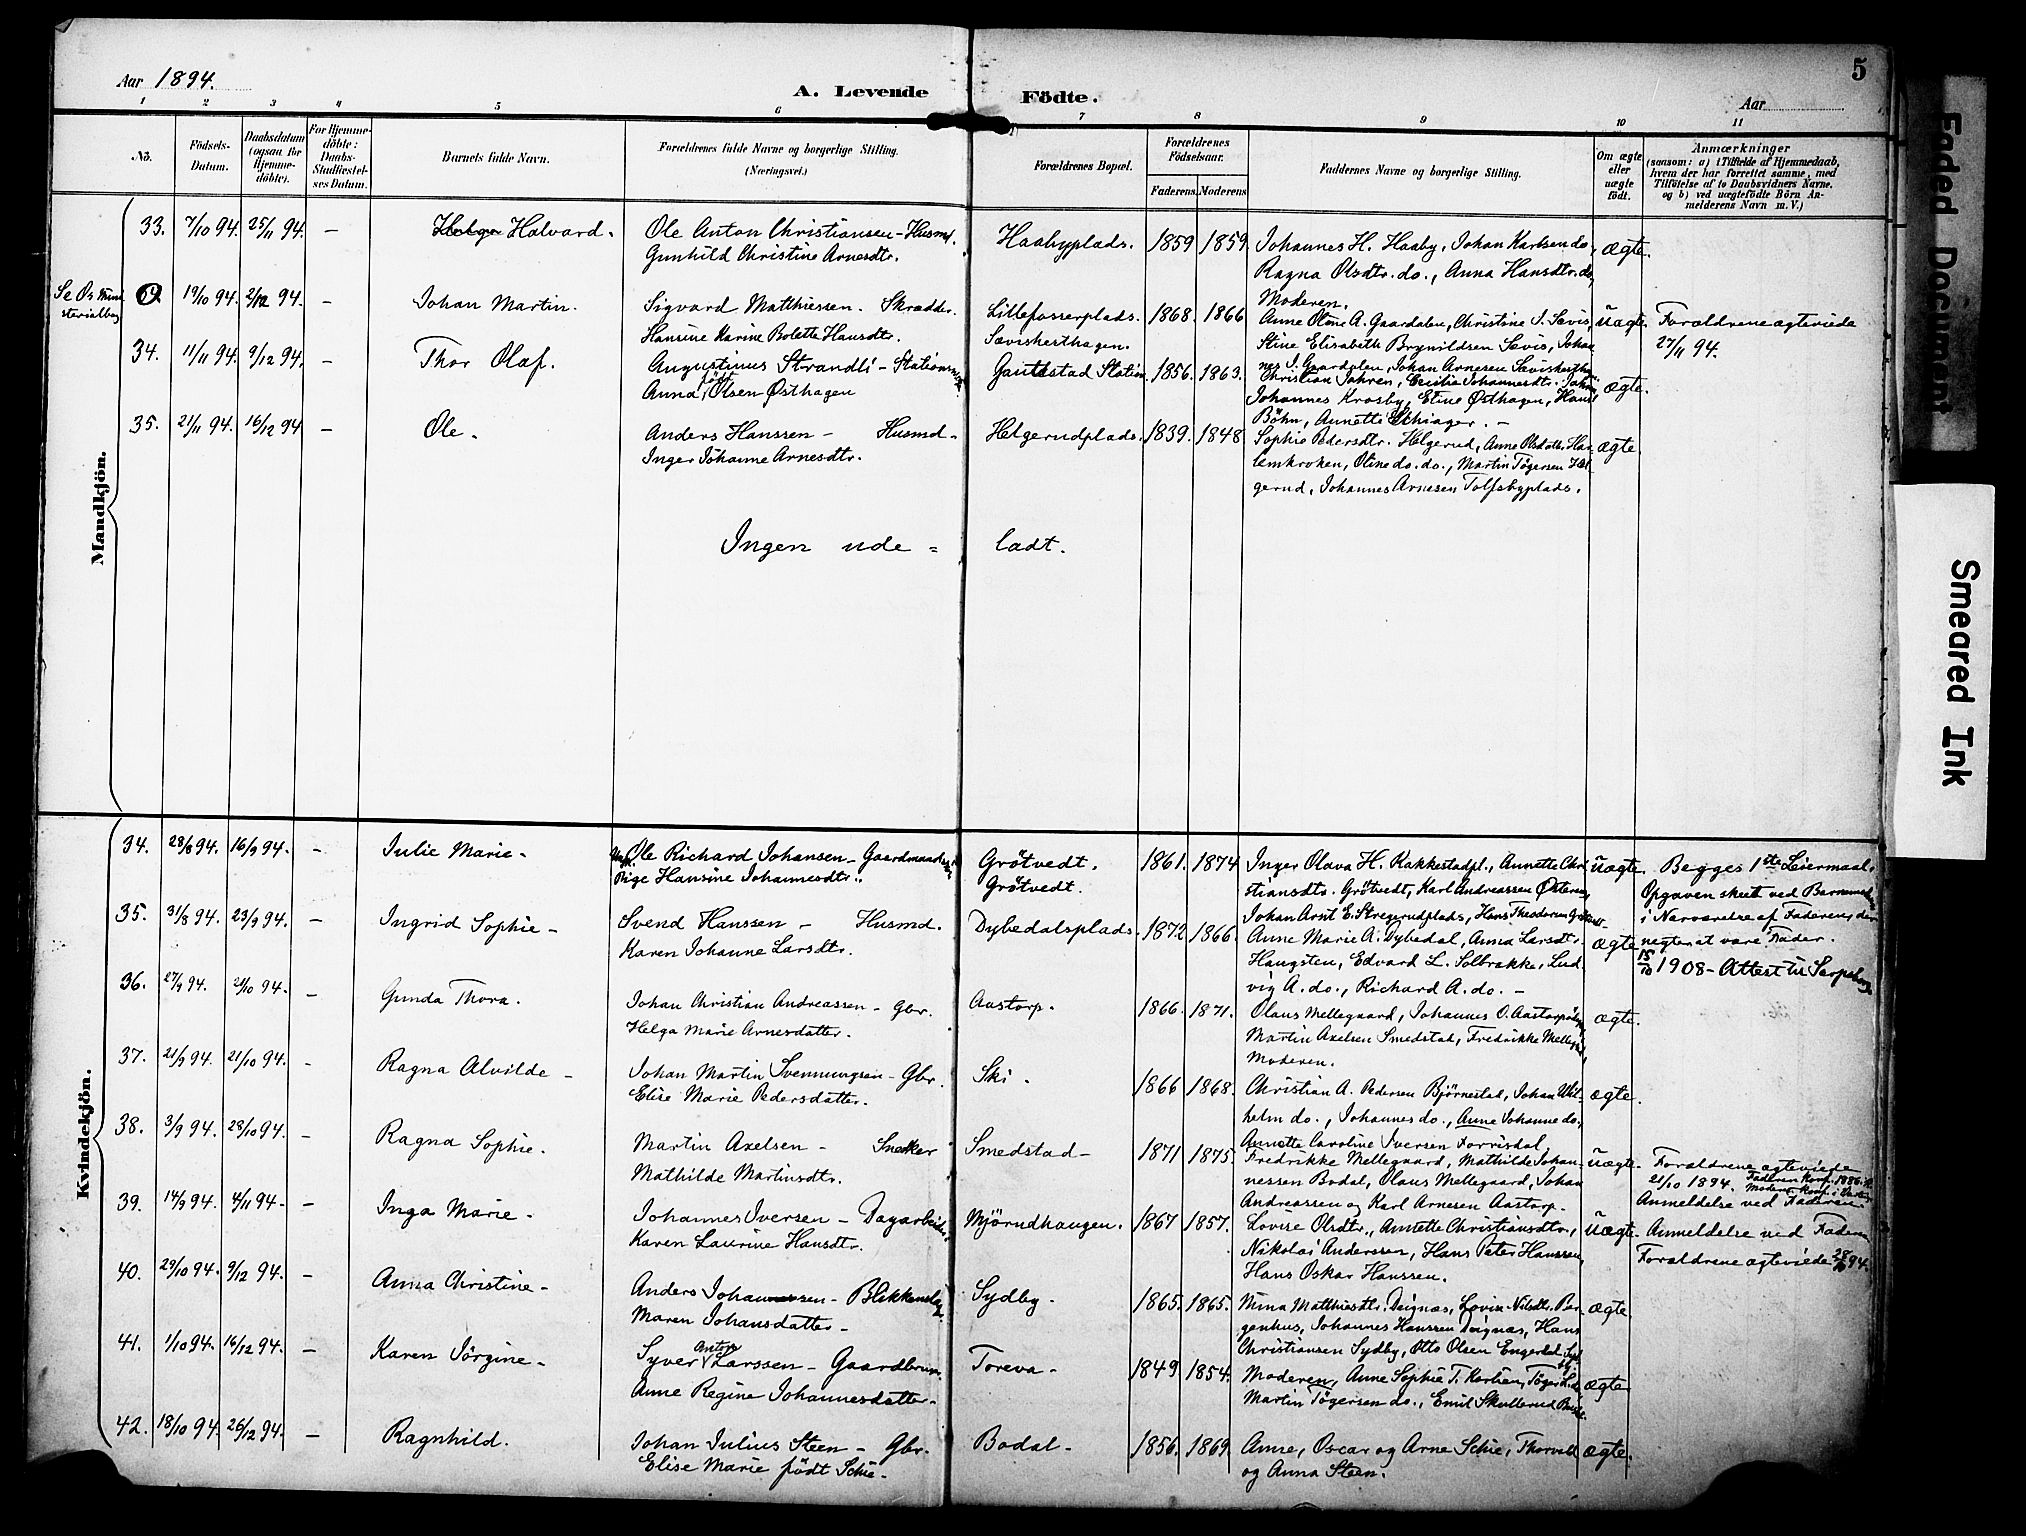 Aar 1894.
A. Levende Födte.
Aar
5
1 2 3 4 5 6 7 8 9 10 11
No. Födsels-Datum. Daabsdatum (ogsaa for Hjemme-döbte). For Hjemme-döbte: Daabs-Stadfæstel-ses Datum. Barnets fulde Navn. Forældrenes fulde Navne og borgerlige Stilling. (Næringsvei.) Forældrenes Bopæl. Forældrenes Födselsaar. Faderens. Moderens. Faddernes Navne og borgerlige Stilling. Om ægte eller uægte födt. Anmærkninger (saasom: a) i Tilfælde af Hjemmedaab, hvem der har forrettet samme, med Tilföielse af to Daabsvidners Navne, og b) ved uægtefödte Börn An-melderens Navn m. V.)
Mandkjön.
33. 7/10 94. 25/11 94. — Halvard. Ole Anton Christiansen - Husmd. Haabyplads. 1859 1859. Johannes H. Haaby, Johan Karlsen do, ægte.
Gunhild Christine Arnesdtr. Ragna Olsdtr. do., Anna Hansdtr. do,
Moderen.
Se Os Mini
sterialbog 19/10 94. 2/12 94. — Johan Martin. Sigvard Matthiessen - Skrædder. Lillefosserplads. 1868. 1866 Anne Oline A. Gaardalen, Christine J. Sævis, uægte. Forældrene ægteviede
Hansine Karine Bolette Hansdtr. Sævishesthagen. Stine Elisabeth Brynildsen Sævis, Johan- 27/11 94.
nes J. Gaardalen, Johan Arnesen
34. 11/11 94. 9/12 94. — Thor Olaf. Augustinus Strandli - Gautestad Station. 1856. 1863. Christian Johren, Cecilia Johannesdtr. ægte.
Anna födt Olsen Østhagen Johannes Krosby, Eline Østhagen, Hans
Böhn, Annette Ethiager. -
35. 21/11 94. 16/12 94 — Ole. Anders Hanssen - Husmd. Helgerudplads. 1839. 1848 Sophie Pedersdtr. Helgerud, Anne Olsdatter Har- ægte.
Inger Johanne Arnesdtr. lemkroken, Oline do. do., Martin Tögersen Hel-
gerud, Johannes Arnesen Tolfsbyplads.
Ingen ude = ladt.
Kvindekjön.
34. 28/8 94. 16/9 94. — Julie Marie. Ungk. Ole Richard Johansen - Grötvedt. 1861. 1874 Inger Olava H. Kakkestadpl., Annette Chri- uægte. Begges 1ste Leiermaal.
Pige Hansine Johannesdtr. Grötvedt. stiansdtr. Grötvedt, Karl Andreassen Østereng, Opgaven skeet ved Barnemod.
Johan Arnt E. Stregerudplads, Hans Theodorsen i Nærværelse af Faderen, der
35. 31/8 94. 23/9 94. — Ingrid Sophie - Svend Hanssen - Husmd. Dybedalsplads. 1872 1866. Anne Marie A. Dybedal, Anna Larsdtr. ægte. negter at være Fader.
Karen Johanne Larsdtr. Haugsten, Edvard L. Solbrække, Lud- 15/10 1908 - Attest til Sarpsborg.
vig A. do., Richard A. do. -
36. 27/9 94. 21/10 94. — Gunda Thora. Johan Christian Andreassen - Gbr. Aastorp. 1866. 1871. Olaus Mellegaard, Johannes O. ægte.
Helga Marie Arnesdatter. Martin Axelsen Smedstad, Fredrikke
Moderen.
37. 21/9 94. 21/10 94. — Ragna Alvilde - Johan Martin Svenningsen - Gbr. Ski. 1866 1868. Christian A. Pedersen Bjørnestad, Johan Wil- ægte.
Elise Marie Pedersdatter. helm do., Johannes do., Anne Johanne do.,
Annette Caroline Iversen Forrisdal
38. 3/9 94. 28/10 94. — Ragna Sophie. Martin Axelsen - Snekker Smedstad - 1871 1875. Fredrikke Mellegaard, Mathilde Johan- uægte. Forældrene ægteviede
Mathilde Martinsdtr. nessen Bodal, Olaus Mellegaard, Johan 21/10 1894. Faderen konf. 1886
Andreassen og Karl Arnesen Aastorp. Anmeldelse ved Faderen
39. 14/9 94. 4/11 94. — Inga Marie. Johannes Iversen - Dagarbeider. Mjörudhaugen. 1867 1857. Lovise Olsdtr., Annette Christiansdtr., uægte. Anmeldelse ved Faderen
Karen Laurine Hansdtr. Nikolai Anderssen, Hans Peter Hanssen, Forældrene ægteviede 28/10 94.
Hans Oskar Hanssen.
40. 29/10 94. 9/12 94. — Anna Christine - Anders Johannessen - Blikkenslag. Sydby. 1865. 1865. Nina Matthiasdtr. Deignæs, Lovise Nilsdtr. Bor- ægte.
Maren Johansdatter - genhus, Johannes Hanssen Deignæs, Hans
Christiansen Sydby, Otto Olsen Engerdal
41. 1/10 94. 16/12 94. — Karen Jörgine - Syver Anton Larssen - Gaardbrug. Toreva - 1849 1854. Moderen, Anne Sophie T. ægte.
Anne Regine Johannesdatter - Martin Tögersen do., Emil Skullerud
42. 18/10 94. 26/12 94. — Ragnhild. Johan Julius Steen - Gbr. Bodal - 1856. 1869. Anne, Oscar og Arne Schie, Thorvald ægte.
Elise Marie födt Schie - og Anna Steen.
Faded Document
Smeared Ink